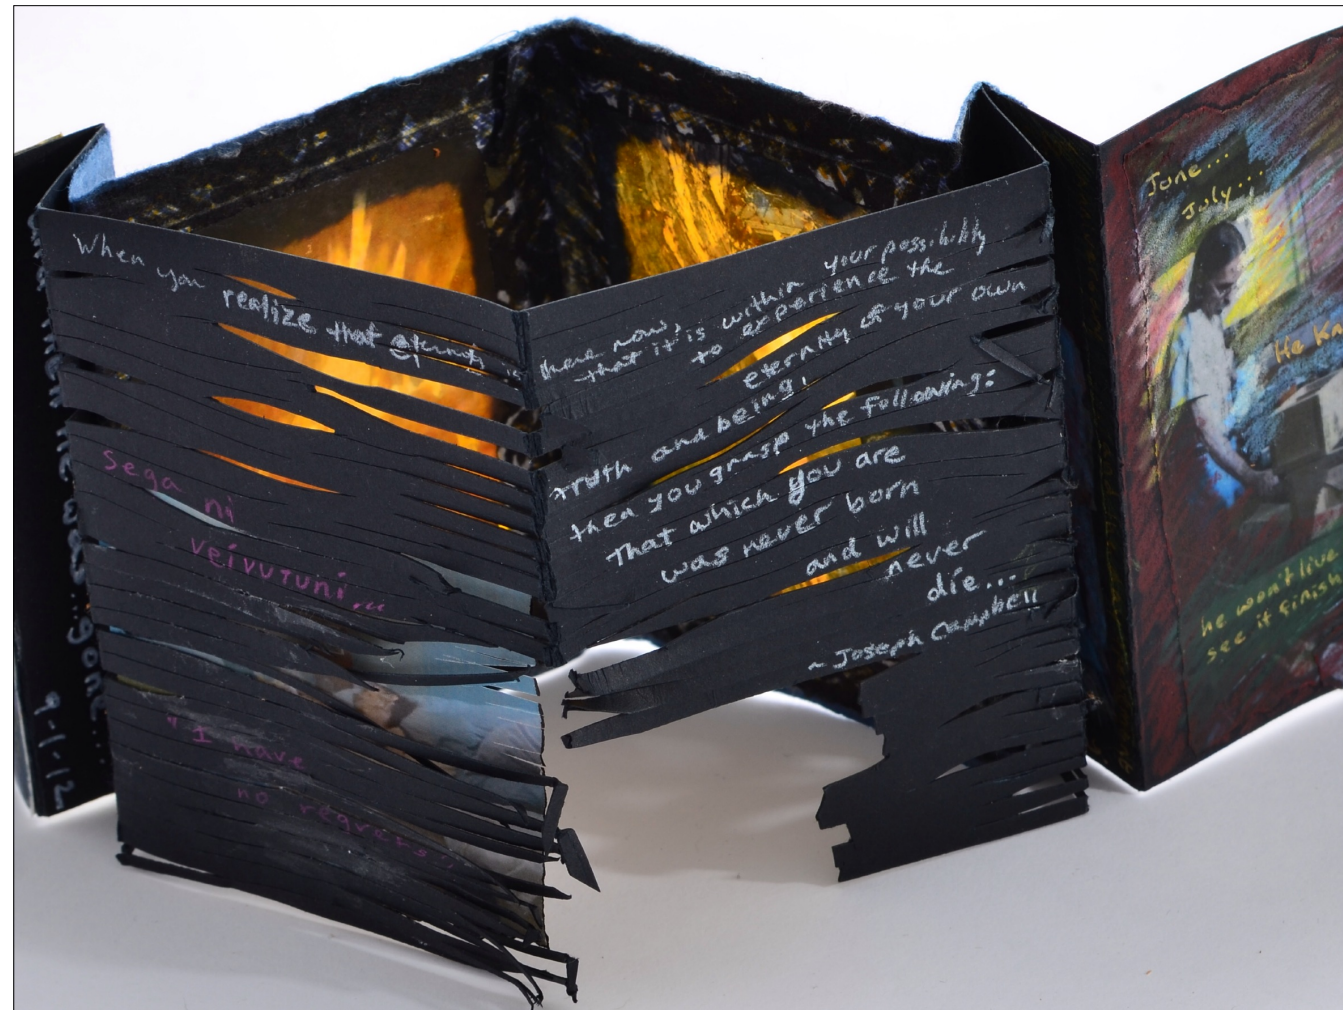 then he was...gone...
9-1-12
When you
realize that eternity is
here now,
that it is within your possibility
to experience the
eternity of your own
truth and being,
then you grasp the following:
that which you are
was never born
and will
never
die...
~Joseph Campbell
sega ni
veivutuni...
"I have
no regrets"
June...
July...
He
he won't live
see it finish